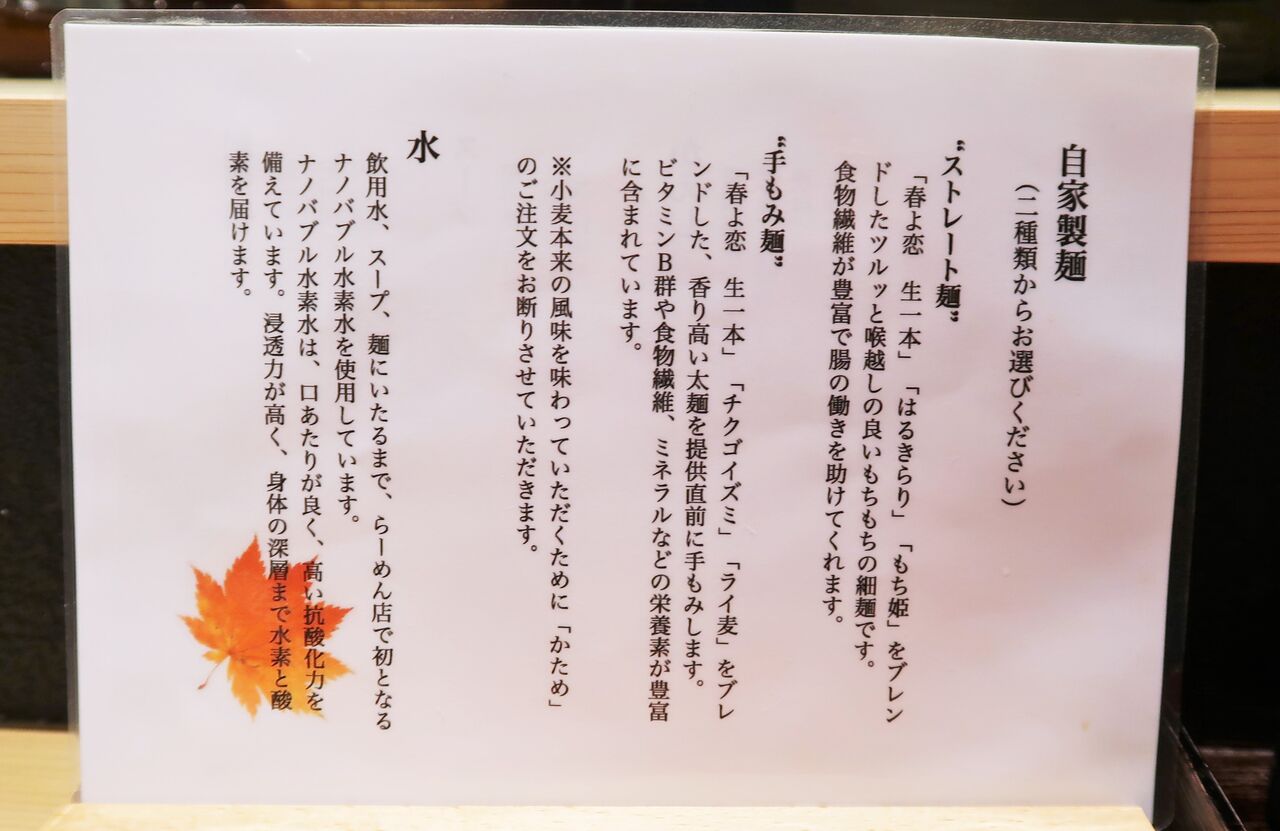 自家製麺
（二種類からお選びください）
“ストレート麺”
「春よ恋　生一本」「はるきらり」「もち姫」をブレン
ドしたツルッと喉越しの良いもちもちの細麺です。
食物繊維が豊富で腸の働きを助けてくれます。
“手もみ麺”
「春よ恋　生一本」「チクゴイズミ」「ライ麦」をブレ
ンドした、香り高い太麺を提供直前に手もみします。
ビタミンB群や食物繊維、ミネラルなどの栄養素が豊富
に含まれています。
※小麦本来の風味を味わっていただくために「かため」
のご注文をお断りさせていただきます。
水
飲用水、スープ、麺にいたるまで、らーめん店で初となる
ナノバブル水素水を使用しています。
ナノバブル水素水は、口あたりが良く、高い抗酸化力を
備えています。浸透力が高く、身体の深層まで水素と酸
素を届けます。